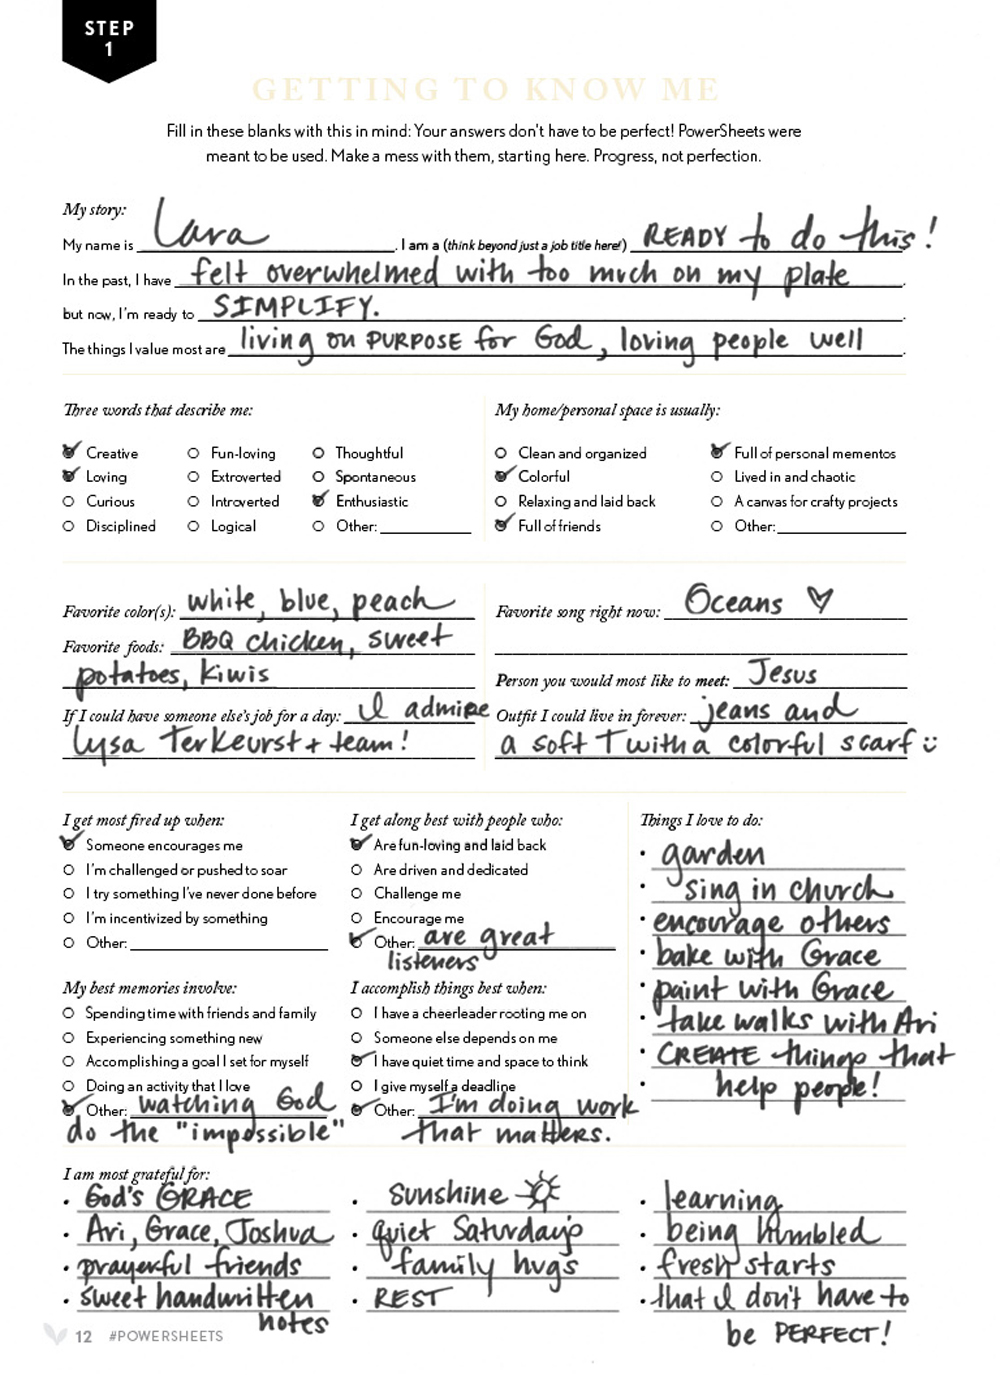 STEP
1
GETTING TO KNOW ME
Fill in these blanks with this in mind: Your answers don't have to be perfect! PowerSheets were
meant to be used. Make a mess with them, starting here. Progress, not perfection.
My story:
My name is Lara. I am a (think beyond just a job title here!) READY to do this!
In the past, I have felt overwhelmed with too much on my plate.
but now, I'm ready to SIMPLIFY.
The things I value most are living on PURPOSE for God, loving people well.
Three words that describe me:
Creative Fun-loving Thoughtful
Loving Extroverted Spontaneous
Curious Introverted Enthusiastic
Disciplined Logical Other:
My home/personal space is usually:
Clean and organized Full of personal mementos
Colorful Lived in and chaotic
Relaxing and laid back A canvas for crafty projects
Full of friends Other:
Favorite color(s): white, blue, peach
Favorite foods: BBQ chicken, sweet
potatoes, kiwis
If I could have someone else's job for a day: I admire
Lysa TerKeurst + team!
Favorite song right now: Oceans ♡
Person you would most like to meet: Jesus
Outfit I could live in forever: jeans and
a soft T with a colorful scarf :)
I get most fired up when:
Someone encourages me
I'm challenged or pushed to soar
I try something I've never done before
I'm incentivized by something
Other:
I get along best with people who:
Are fun-loving and laid back
Are driven and dedicated
Challenge me
Encourage me
Other: are great
listeners
Things I love to do:
• garden
• sing in church
• encourage others
• bake with Grace
• paint with Grace
• take walks with Ari
• CREATE things that
• help people!
My best memories involve:
Spending time with friends and family
Experiencing something new
Accomplishing a goal I set for myself
Doing an activity that I love
Other: watching God
do the "impossible"
I accomplish things best when:
I have a cheerleader rooting me on
Someone else depends on me
I have quiet time and space to think
I give myself a deadline
Other: I'm doing work
that matters.
I am most grateful for:
• God's GRACE
• Ari, Grace, Joshua
• prayerful friends
• sweet handwritten
notes
• Sunshine
• quiet Saturdays
• family hugs
• REST
• learning
• being humbled
• fresh starts
• that I don't have to
be PERFECT!
12 #POWERSHEETS